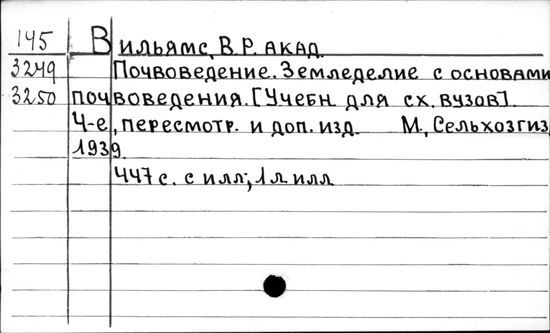 145 Вильямс, В.Р. акад.
3249 Почвоведение. Земледелие с основами
3250 почвоведения. [Учебн. для сх. вузов].
4-е, пересмотр. и доп. изд. М., Сельхозгиз,
1939.
447 с. с илл.; 1 л. илл